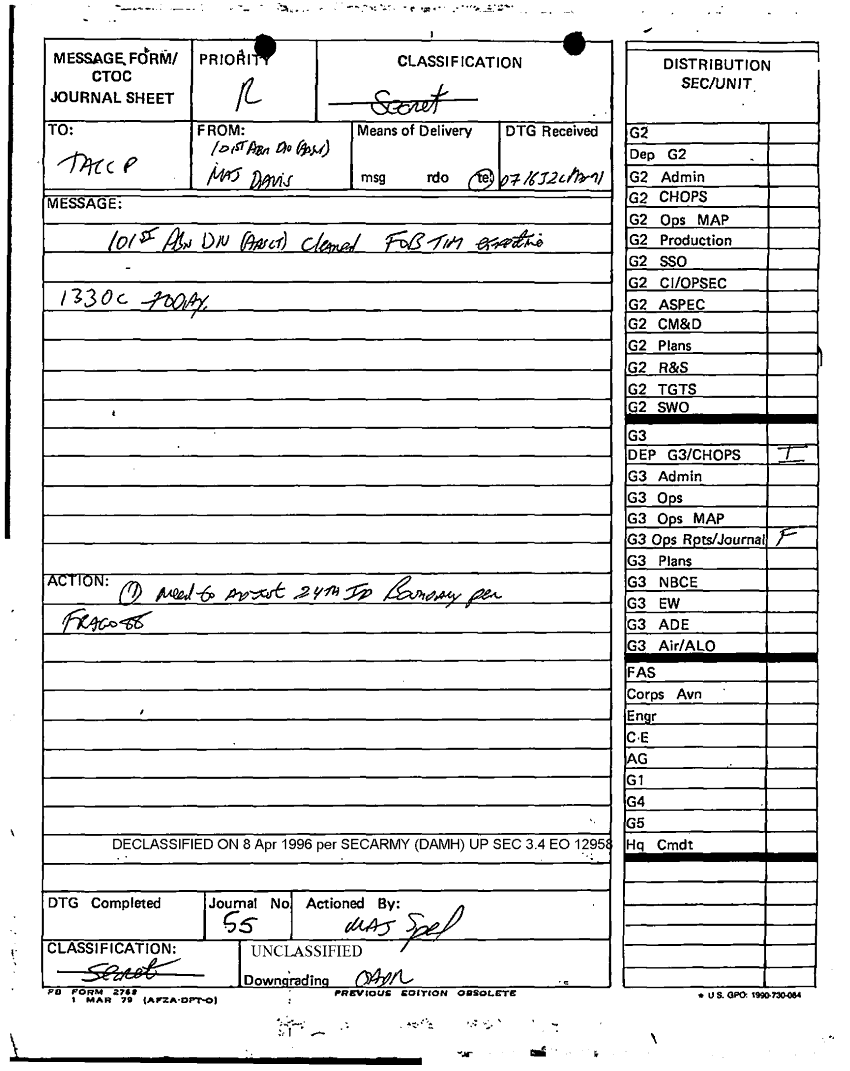 MESSAGE FORM/
CTOC
JOURNAL SHEET
PRIORITY
R
CLASSIFICATION
Secret
TO:
TACCP
FROM:
101ST ABN DIV (AASLT)
MAJ DAVIS
Means of Delivery
msg rdo tel
DTG Received
071632CMar91
MESSAGE:
101ST Abn DIV (AASLT) Cleared FOB TIM effective
1330C TODAY.
ACTION: (1) Need to adjust 24TH ID Boundary per
FRAGO 
DECLASSIFIED ON 8 Apr 1996 per SECARMY (DAMH) UP SEC 3.4 EO 12958
DTG Completed
Journal No
55
Actioned By:
MAJ
CLASSIFICATION:
Secret
UNCLASSIFIED
Downgrading OADR
FB FORM 2768
1 MAR 79 (AFZA-DPT-O)
PREVIOUS EDITION OBSOLETE
DISTRIBUTION
SEC/UNIT
G2
Dep G2
G2 Admin
G2 CHOPS
G2 Ops MAP
G2 Production
G2 SSO
G2 CI/OPSEC
G2 ASPEC
G2 CM&D
G2 Plans
G2 R&S
G2 TGTS
G2 SWO
G3
DEP G3/CHOPS I
G3 Admin
G3 Ops
G3 Ops MAP
G3 Ops Rpts/Journal F
G3 Plans
G3 NBCE
G3 EW
G3 ADE
G3 Air/ALO
FAS
Corps Avn
Engr
C-E
AG
G1
G4
G5
Hq Cmdt
* U S. GPO: 1990-730-084